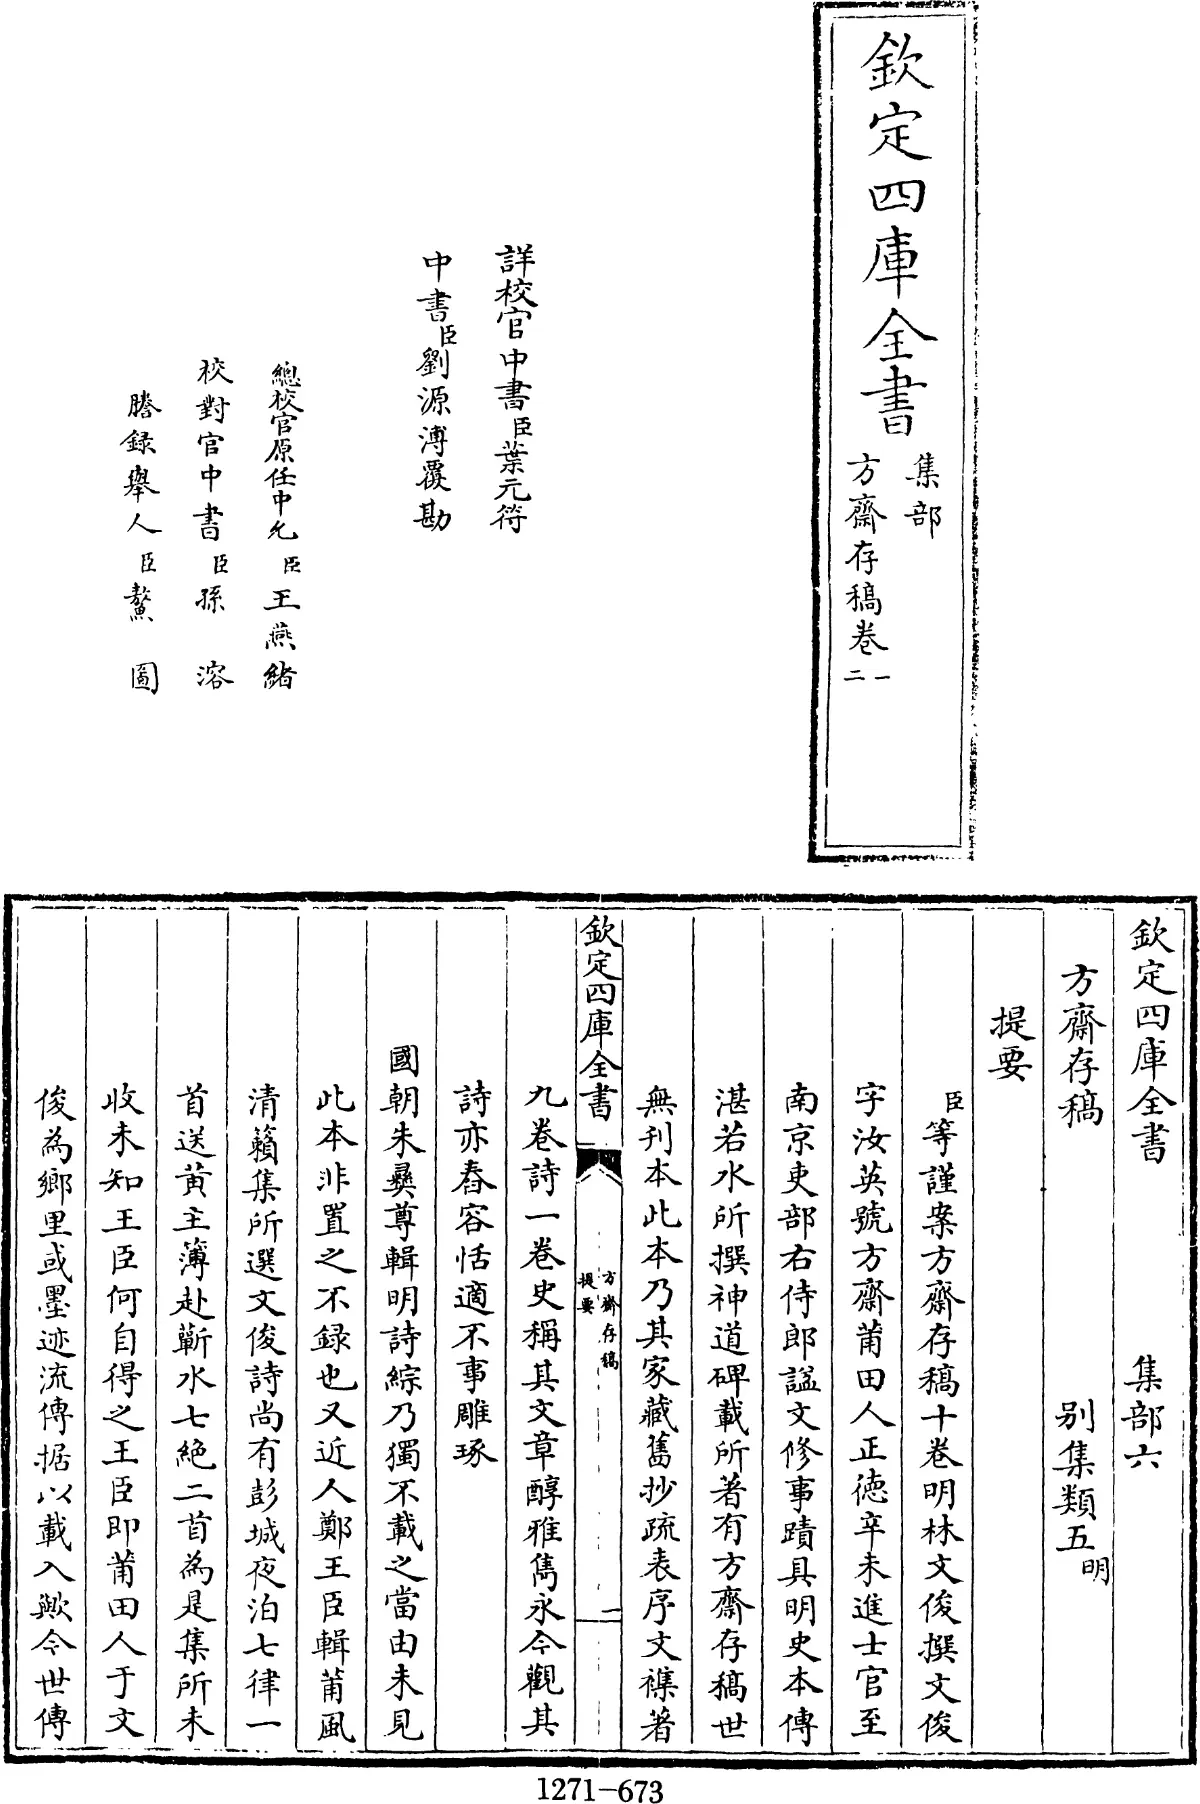 欽定四庫全書
集部
方齋存稿卷一
二
詳校官中書臣葉元符
中書臣劉源溥覆勘
總校官原任中允臣王燕緒
校對官中書臣孫溶
謄録舉人臣鰲圖
欽定四庫全書 集部六
方齋存稿 别集類五明
提要
臣等謹案方齋存稿十卷明林文俊撰文俊
字汝英號方齋莆田人正徳辛未進士官至
南京吏部右侍郎諡文修事蹟具明史本傳
湛若水所撰神道碑載所著有方齋存稿世
無刊本此本乃其家藏舊抄疏表序文襍著
欽定四庫全書
方齋存稿
提要
二
九卷詩一卷史稱其文章醇雅雋永今觀其
詩亦舂容恬適不事雕琢
國朝朱彝尊輯明詩綜乃獨不載之當由未見
此本非置之不録也又近人鄭王臣輯莆風
清籟集所選文俊詩尚有彭城夜泊七律一
首送黄主簿赴蘄水七絶二首為是集所未
收未知王臣何自得之王臣即莆田人于文
俊為鄉里或墨迹流傳据以載入歟今世傳
1271-673